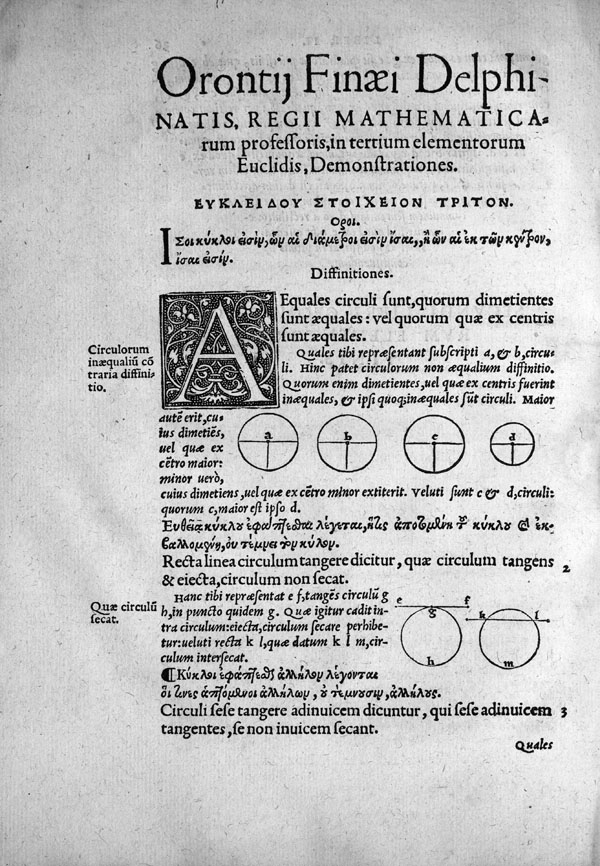 Orontij Finæi Delphi-
NATIS, REGII MATHEMATICA-
rum professoris, in tertium elementorum
Euclidis, Demonstrationes.
ΕΥΚΛΕΙΔΟΥ ΣΤΟΙΧΕΙΟΝ ΤΡΙΤΟΝ.
Οροι.
ΙΣοι κύκλοι εἰσὶν, ὧν αἱ διάμετροι εἰσὶν ἴσαι, ἢ ὧν αἱ ἐκ τῶν κέντρον,
ἴσαι εἰσίν.
Diffinitiones.
AEquales circuli sunt, quorum dimetientes
sunt æquales: vel quorum quæ ex centris
sunt æquales.
Circulorum
inæqualiū cō
traria diffini-
tio.
AEquales tibi repræsentant subscripti a, & b, circu-
li. Hinc patet circulorum non æqualium diffinitio.
Quorum enim dimetientes, uel quæ ex centris fuerint
inæquales, & ipsi quoq; inæquales sūt circuli. Maior
autē erit, cu-
ius dimetiēs,
uel quæ ex
cētro maior:
minor uerò,
a b c d
cuius dimetiens, uel quæ ex cētro minor extiterit. Veluti sunt c & d, circuli:
quorum c, maior est ipso d.
Εὐθεῖα κύκλου ἐφάπτεσθαι λέγεται, ἥτις ἁπτομένη τοῦ κύκλου καὶ ἐκ-
βαλλομένη, οὐ τέμνει τὸν κύκλον.
Recta linea circulum tangere dicitur, quæ circulum tangens 2
& eiecta, circulum non secat.
Quæ circulū
secat.
Hanc tibi repræsētat e f, tangēs circulū g
h, in puncto quidem g. Quæ igitur cadit in-
tra circulum: eiecta, circulum secare perhibe-
tur: ueluti recta k l, quæ datum k l m, cir-
culum intersecat.
e f
g k l
h m
Κύκλοι ἐφάπτεσθαι ἀλλήλων λέγονται
οἵτινες ἁπτόμενοι ἀλλήλων, οὐ τέμνουσιν, ἀλλήλους.
Circuli sese tangere adinuicem dicuntur, qui sese adinuicem 3
tangentes, se non inuicem secant.
Quales